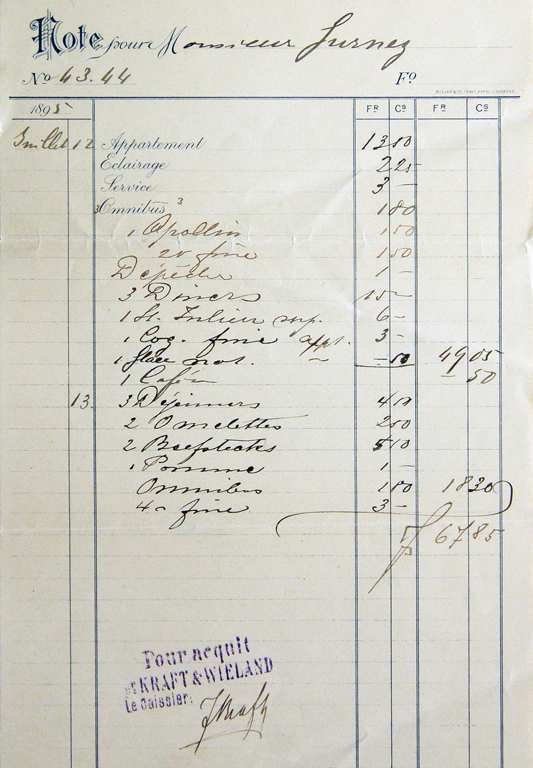 Note pour Monsieur Jurnez
No 43.44 Fo
1895 FR Cs FR Cs
Juillet 12 Appartement 13 50
Eclairage 2 25
Service 3 —
3 Omnibus 3 1 80
1 Apollin 1 50
20 fine 1 50
Dépêche 1 —
3 Diners 15 —
1 St. Julien sup. 6 —
1 Cog. fine 3 —
1 Glace nat. — 50 49 05
1 Café — 50
13. 3 Déjeuners
2 Omelettes
2 Beefsteaks
1 Pomme 1 —
Omnibus 1 80 18 30
4 a fine 3 —
67 85
Pour acquit
pr KRAFT & WIELAND
Le Caissier:
J Kraft